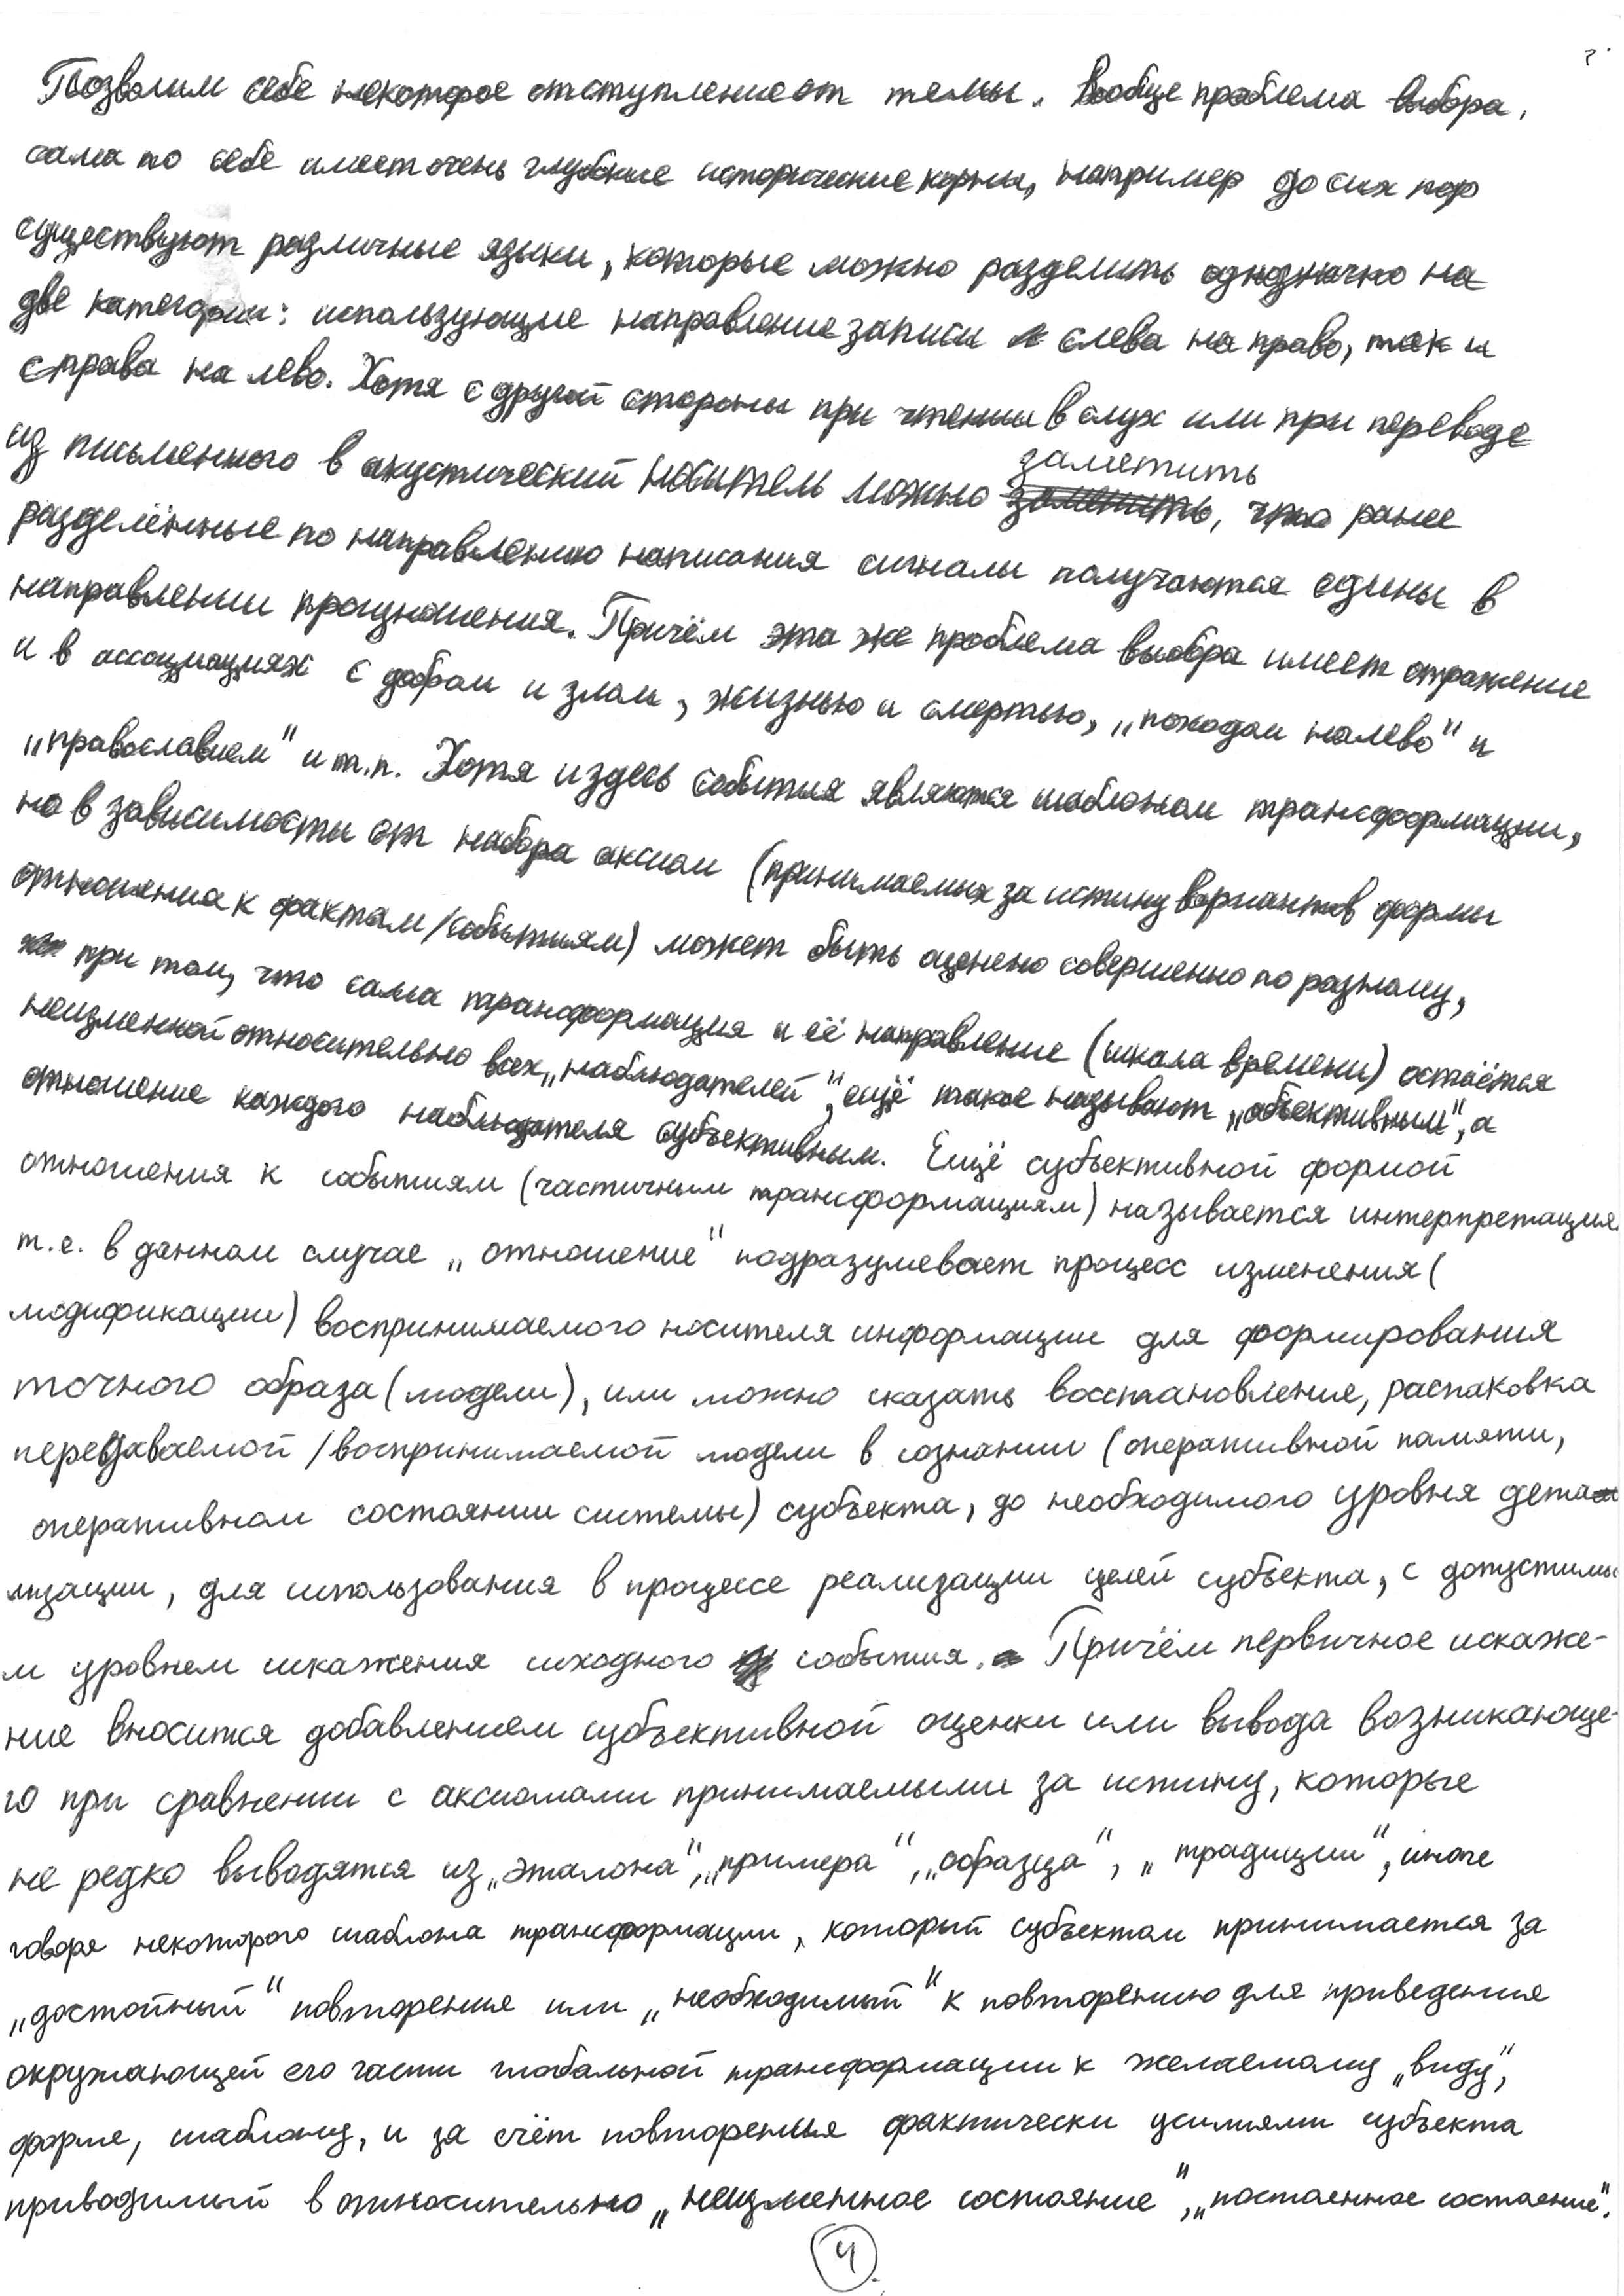 Позволим себе некоторое отступление от темы. Вообще проблема выбора,
сама по себе имеет очень глубокие исторические корни, например до сих пор
существуют различные языки, которые можно разделить однозначно на
две категории: использующие направление записи слева на право, так и
справа на лево. Хотя с другой стороны при чтении в слух или при переводе
из письменного в акустический носитель можно заметить, что ранее
разделённые по направлению написания сигналы получаются едины в
направлении произношения. Причём эта же проблема выбора имеет отражение
и в ассоциациях с добром и злом, жизнью и смертью, „походом налево" и
„православием" и т.п. Хотя и здесь события являются шаблоном трансформации,
но в зависимости от набора аксиом (принимаемых за истину вариантов формы
отношения к фактам/событиям) может быть оценено совершенно по разному,
при том, что сама трансформация и её направление (шкала времени) остаётся
неизменной относительно всех „наблюдателей", ещё такое называют „объективным", а
отношение каждого наблюдателя субъективным. Ещё субъективной формой
отношения к событиям (частичным трансформациям) называется интерпретация.
т.е. в данном случае „отношение" подразумевает процесс изменения (
модификации) воспринимаемого носителя информации для формирования
точного образа (модели), или можно сказать восстановление, распаковка
передаваемой/воспринимаемой модели в сознании (оперативной памяти,
оперативном состоянии системы) субъекта, до необходимого уровня дета
лизации, для использования в процессе реализации целей субъекта, с допустимы
м уровнем искажения исходного события. Причём первичное искаже-
ние вносится добавлением субъективной оценки или вывода возникающе-
го при сравнении с аксиомами принимаемыми за истину, которые
не редко выводятся из „эталона", „примера", „образца", „традиции", иначе
говоря некоторого шаблона трансформации, который субъектом принимается за
„достойный" повторения или „необходимый" к повторению для приведения
окружающей его части глобальной трансформации к желаемому „виду",
форме, шаблону, и за счёт повторенья фактически усилиями субъекта
приводимый в относительно „неизменное состояние", „постоенное состаение".
4